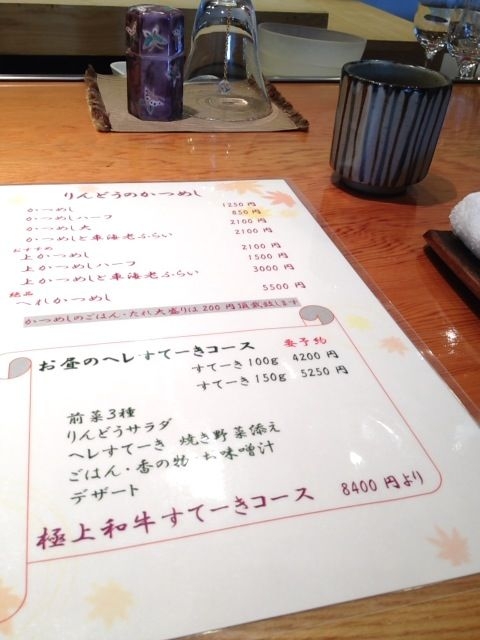 りんどうのかつめし
かつめし 1250円
かつめしハーフ 850円
かつめし大 2100円
かつめしと車海老ふらい 2100円
おすすめ
上かつめし 2100円
上かつめしハーフ 1500円
上かつめしと車海老ふらい 3000円
絶品
へれかつめし 5500円
かつめしのごはん・たれ大盛りは200円頂戴致します
お昼のヘレ・すてーきコース 要予約
すてーき100g 4200円
すてーき150g 5250円
前菜3種
りんどうサラダ
ヘレすてーき 焼き野菜添え
ごはん・香の物・お味噌汁
デザート
極上和牛すてーきコース 8400円より